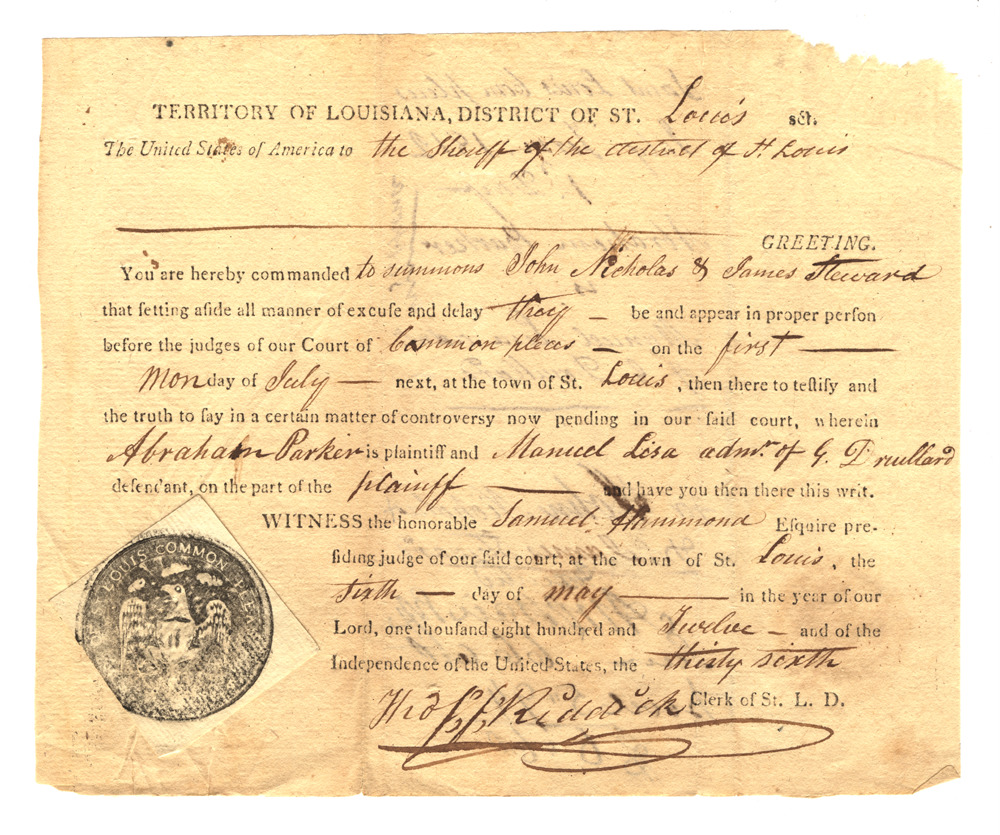 TERRITORY OF LOUISIANA, DISTRICT OF ST. Louis sct.
The United States of America to the Sheriff of the district of St Louis
GREETING.
You are hereby commanded to summons John Nicholas & James Steward
that ſetting aſide all manner of excuse and delay they — be and appear in proper perſon
before the judges of our Court of Common pleas — on the first —
Monday of July — next, at the town of St. Louis, then there to teſtify and
the truth to ſay in a certain matter of controversy now pending in our ſaid court, wherein
Abraham Parker is plaintiff and Manuel Lisa admr. of G. Drullard
defendant, on the part of the plaintiff — and have you then there this writ.
WITNESS the honorable Samuel Hammond Eſquire pre-
ſiding judge of our ſaid court, at the town of St. Louis, the
sixth — day of may — in the year of our
Lord, one thouſand eight hundred and Twelve — and of the
Independence of the United States, the thirty sixth
Tho F Riddick Clerk of St. L. D.
LOUIS COMMON PLEAS